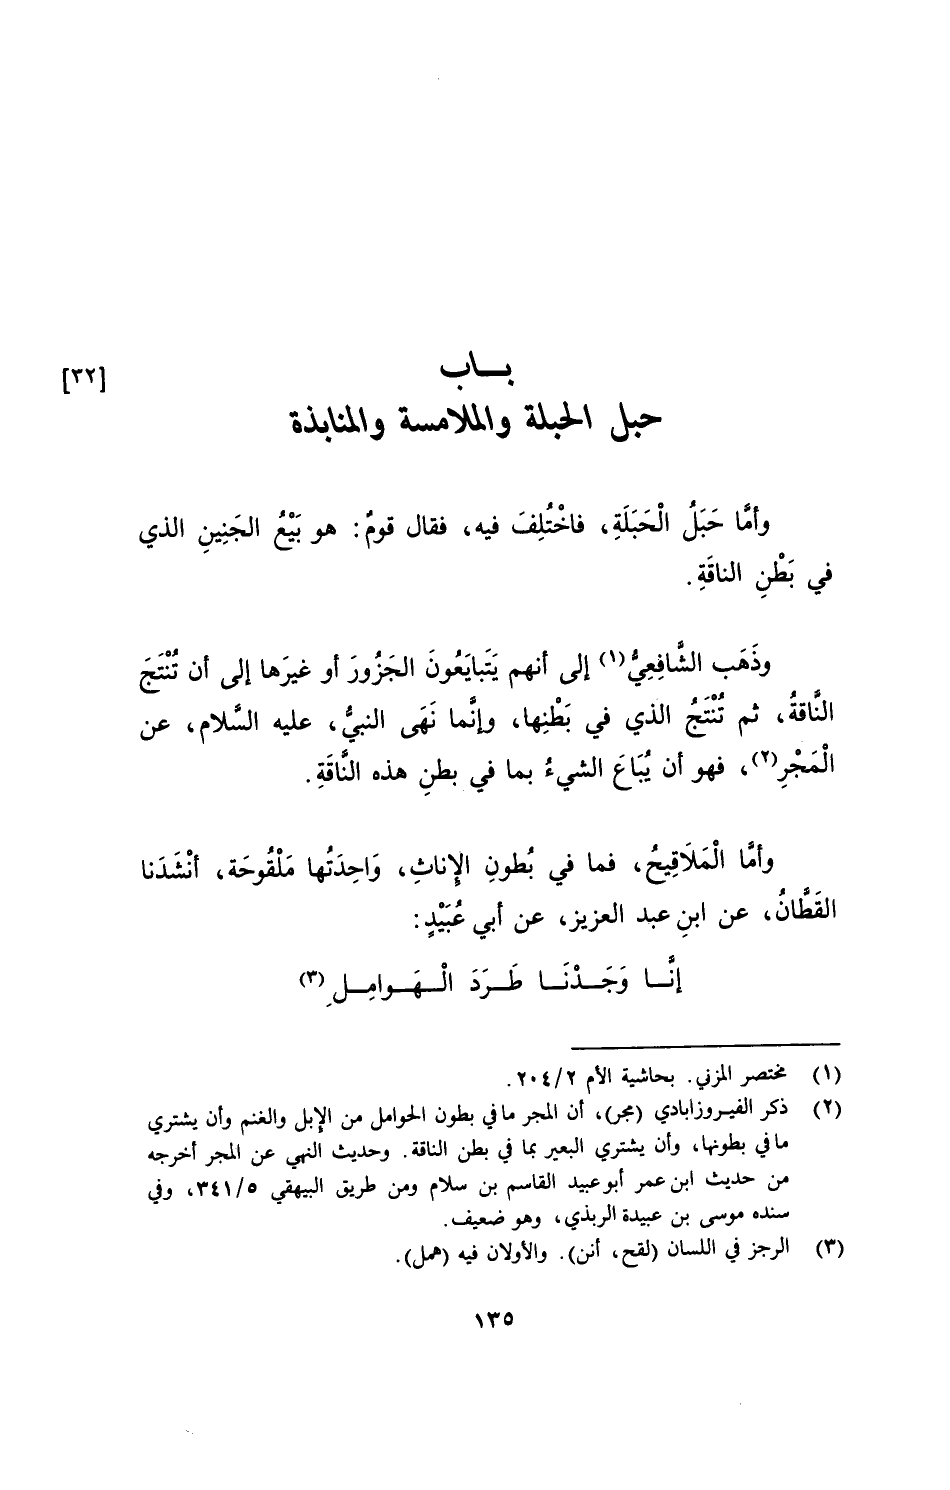 بــاب
[٣٢]
حبل الحبلة والملامسة والمنابذة
وأمَّا حَبَلُ الْحَبَلَةِ، فاخْتُلِفَ فيه، فقال قومٌ: هو بَيْعُ الجَنِينِ الذي
في بَطْنِ الناقَةِ.
وذَهَب الشَّافِعِيُّ(١) إلى أنهم يَتَبايَعُونَ الجَزُورَ أو غيرَها إلى أن تُنْتَجَ
النَّاقةُ، ثم تُنْتَجُ الذي في بَطْنِها، وإنَّما نَهَى النبيُّ، عليه السَّلام، عن
الْمَجْرِ(٢)، فهو أن يُبَاعَ الشيءُ بما في بطنِ هذه النَّاقَةِ.
وأمَّا الْمَلَاقِيحُ، فما في بُطونِ الإناثِ، وَاحِدَتُها مَلْقُوحَة، أنْشَدَنا
القَطَّانُ، عن ابنِ عبد العزيز، عن أبي عُبَيْدٍ:
إنَّــا وَجَــدْنَــا طَــرَدَ الْــهَــوامِــلِ(٣)
(١) مختصر المزني. بحاشية الأم ٢٠٤/٢.
(٢) ذكر الفيروزابادي (مجر)، أن المجر ما في بطون الحوامل من الإبل والغنم وأن يشتري
ما في بطونها، وأن يشتري البعير بما في بطن الناقة. وحديث النهي عن المجر أخرجه
من حديث ابن عمر أبو عبيد القاسم بن سلام ومن طريق البيهقي ٣٤١/٥، وفي
سنده موسى بن عبيدة الربذي، وهو ضعيف.
(٣) الرجز في اللسان (لقح، أنن). والأولان فيه (همل).
١٣٥